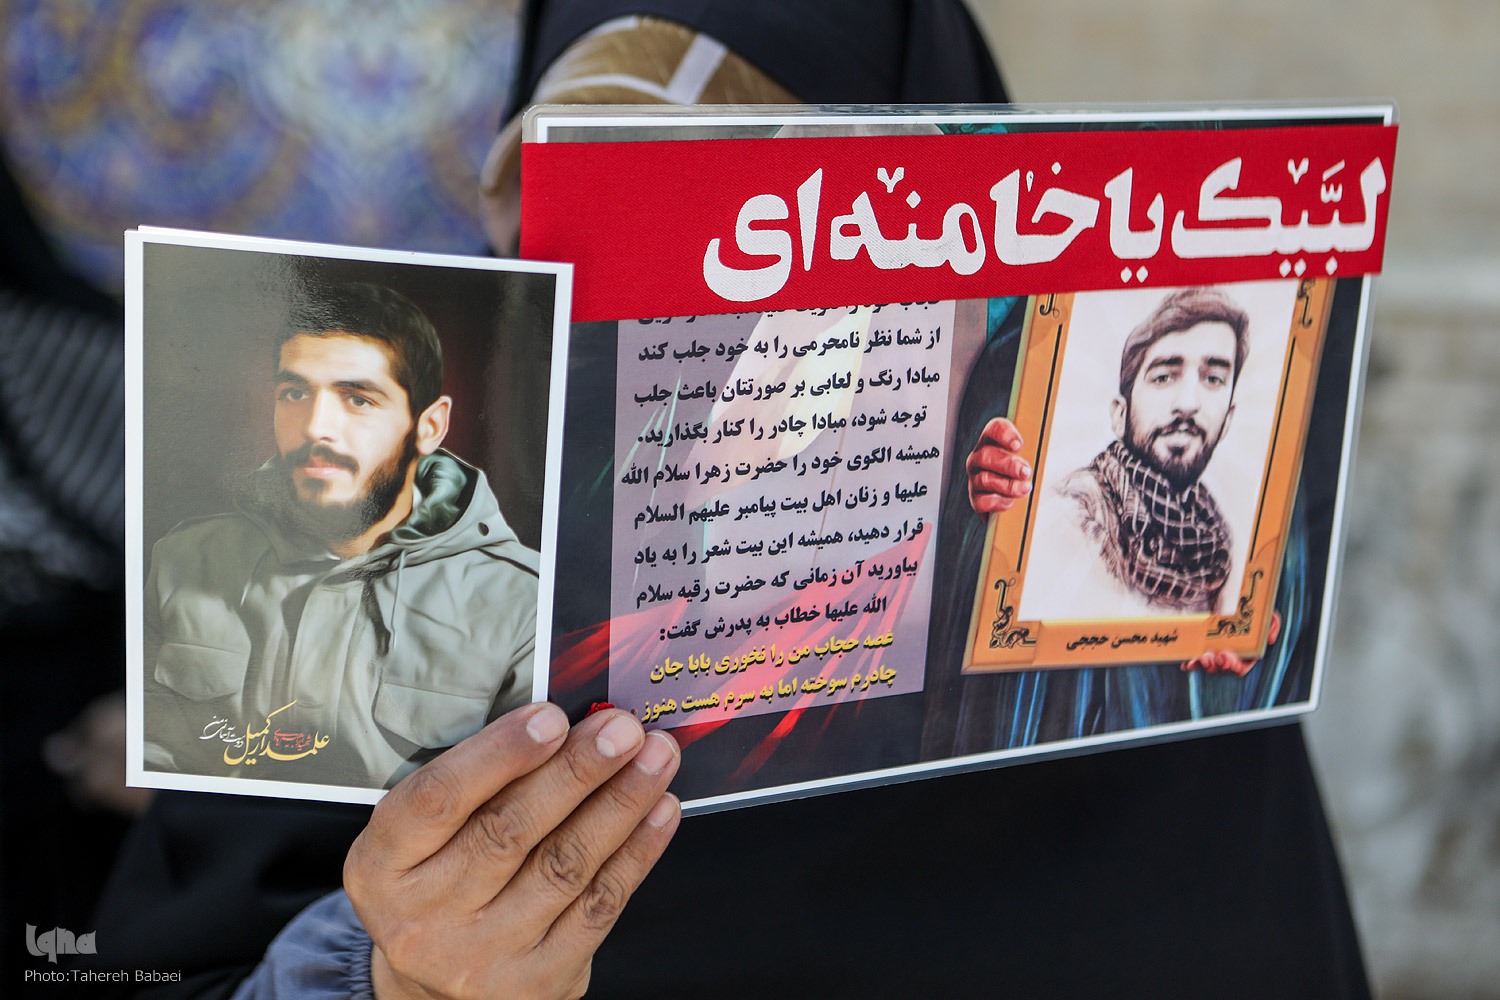 لبَّیک یا خامنه‌ای
از شما نظر نامحرمی را به خود جلب کند
مبادا رنگ و لعابی بر صورتتان باعث جلب
توجه شود، مبادا چادر را کنار بگذارید.
همیشه الگوی خود را حضرت زهرا سلام الله
علیها و زنان اهل بیت پیامبر علیهم السلام
قرار دهید، همیشه این بیت شعر را به یاد
بیاورید آن زمانی که حضرت رقیه سلام
الله علیها خطاب به پدرش گفت:
غصه حجاب من را نخوری بابا جان
چادرم سوخته اما به سرم هست هنوز
شهید محسن حججی
علمدار کمیل
Iqna
Photo:Tahereh Babaei